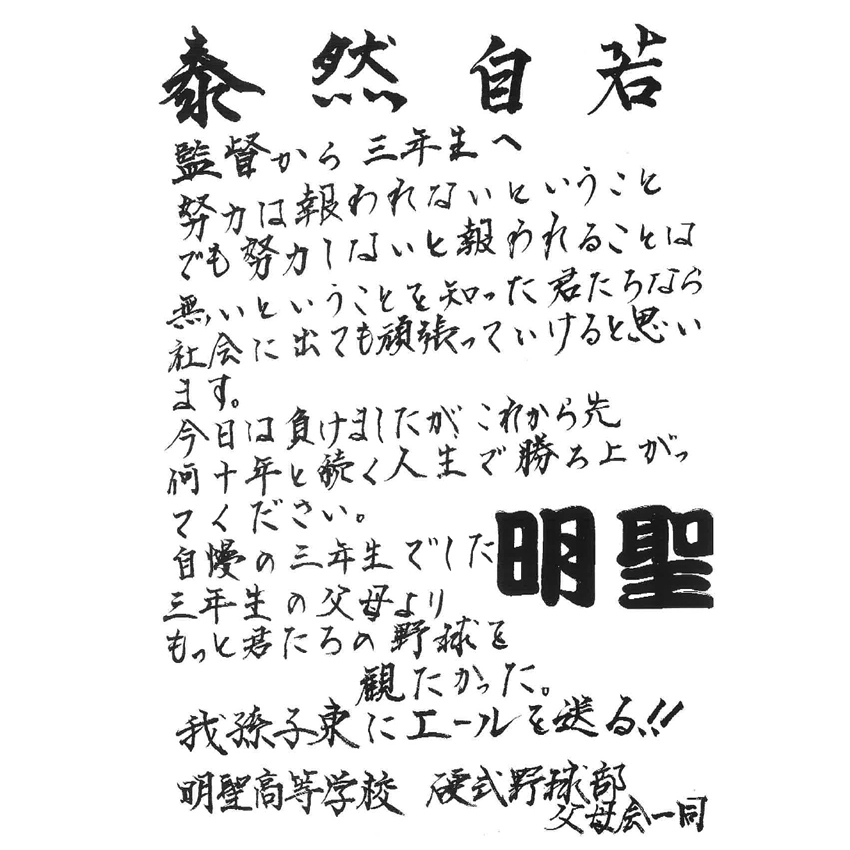 泰然自若
監督から三年生へ
努力は報われないということ
でも努力しないと報われることは
無いということを知った君たちなら
社会に出ても頑張っていけると思い
ます。
今日は負けましたがこれから先
何十年と続く人生で勝ち上がっ
てください。
自慢の三年生でした
明聖
三年生の父母より
もっと君たちの野球を
観たかった。
我孫子東にエールを送る!!
明聖高等学校 硬式野球部
父母会一同